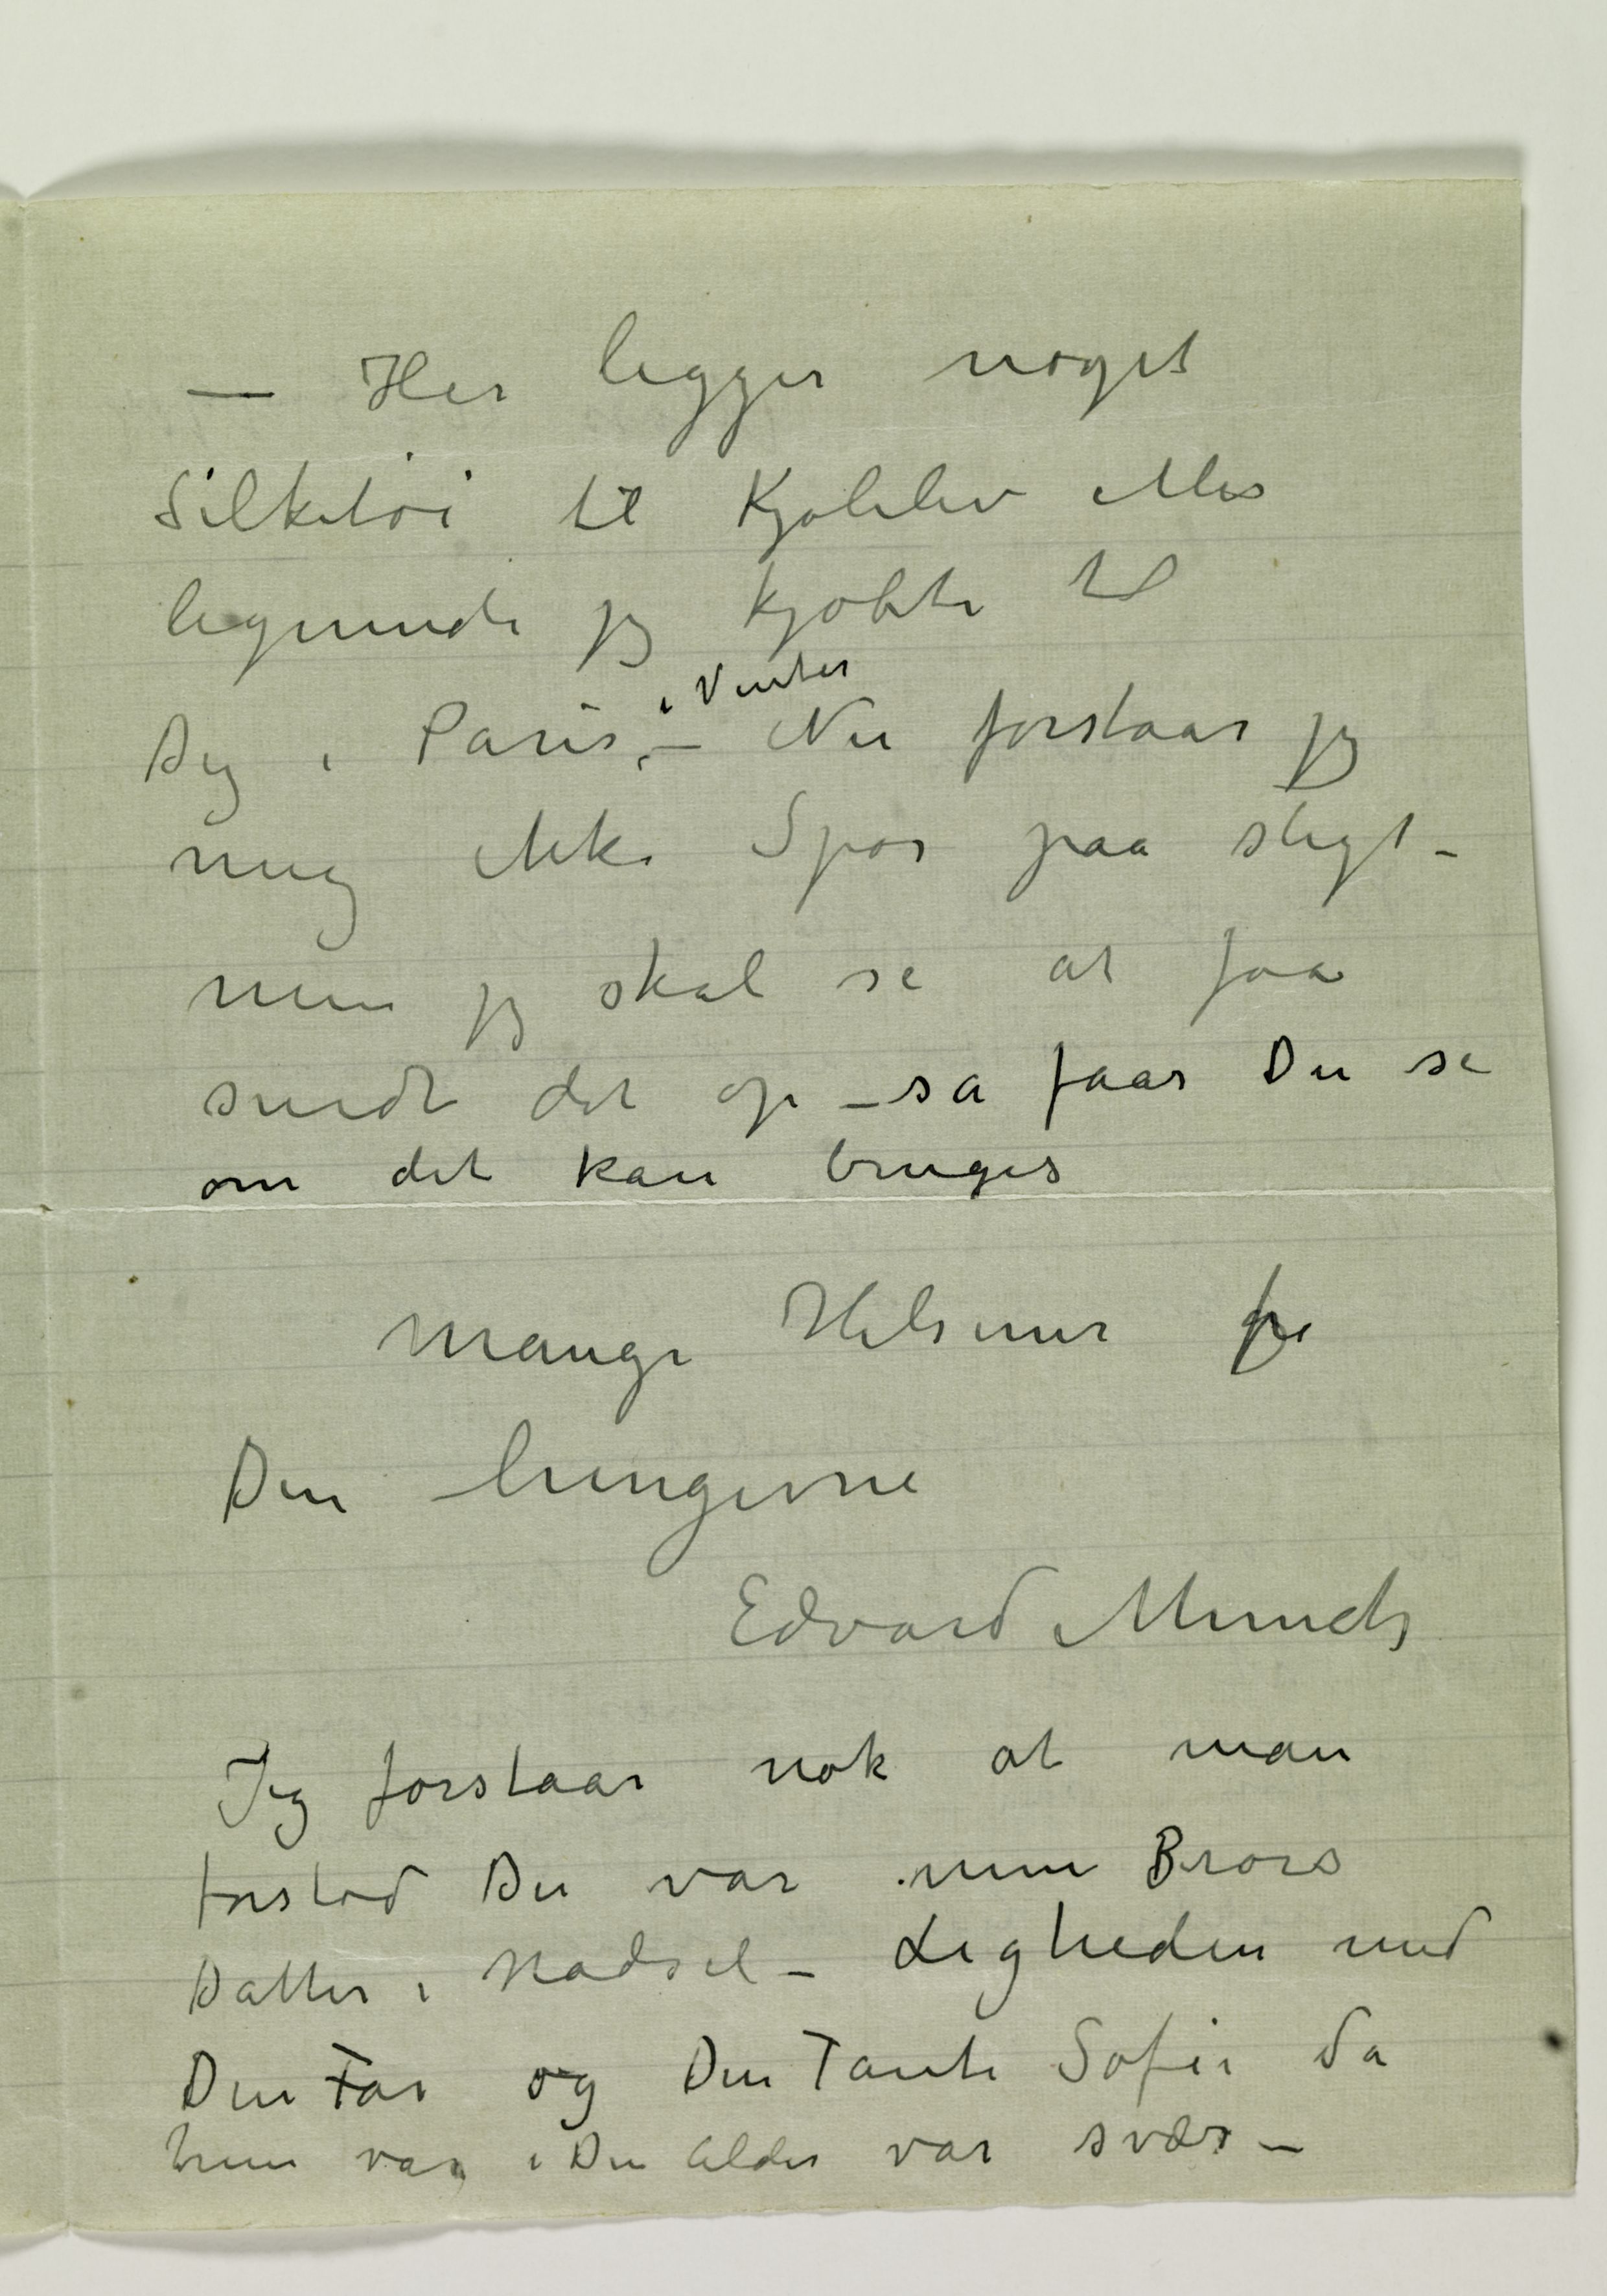 — Her ligger noget
Silketöi til Kjoleliv eller
lignende jeg kjøbte til
Dig i Paris, i Vinter – Nu forstaar jeg
mig ikke Spor paa sligt –
men jeg skal se at faa
sendt det op – sa faar Du se
om det kan bruges
Mange Hilsener fra
Din hengivne
Edvard Munch
Jeg forstaar nok at man
forstod Du var min Brors
Datter i Hadsel – Ligheden med
Din Far og Din Tante Sofie da
hun var i Din Alder var svær –